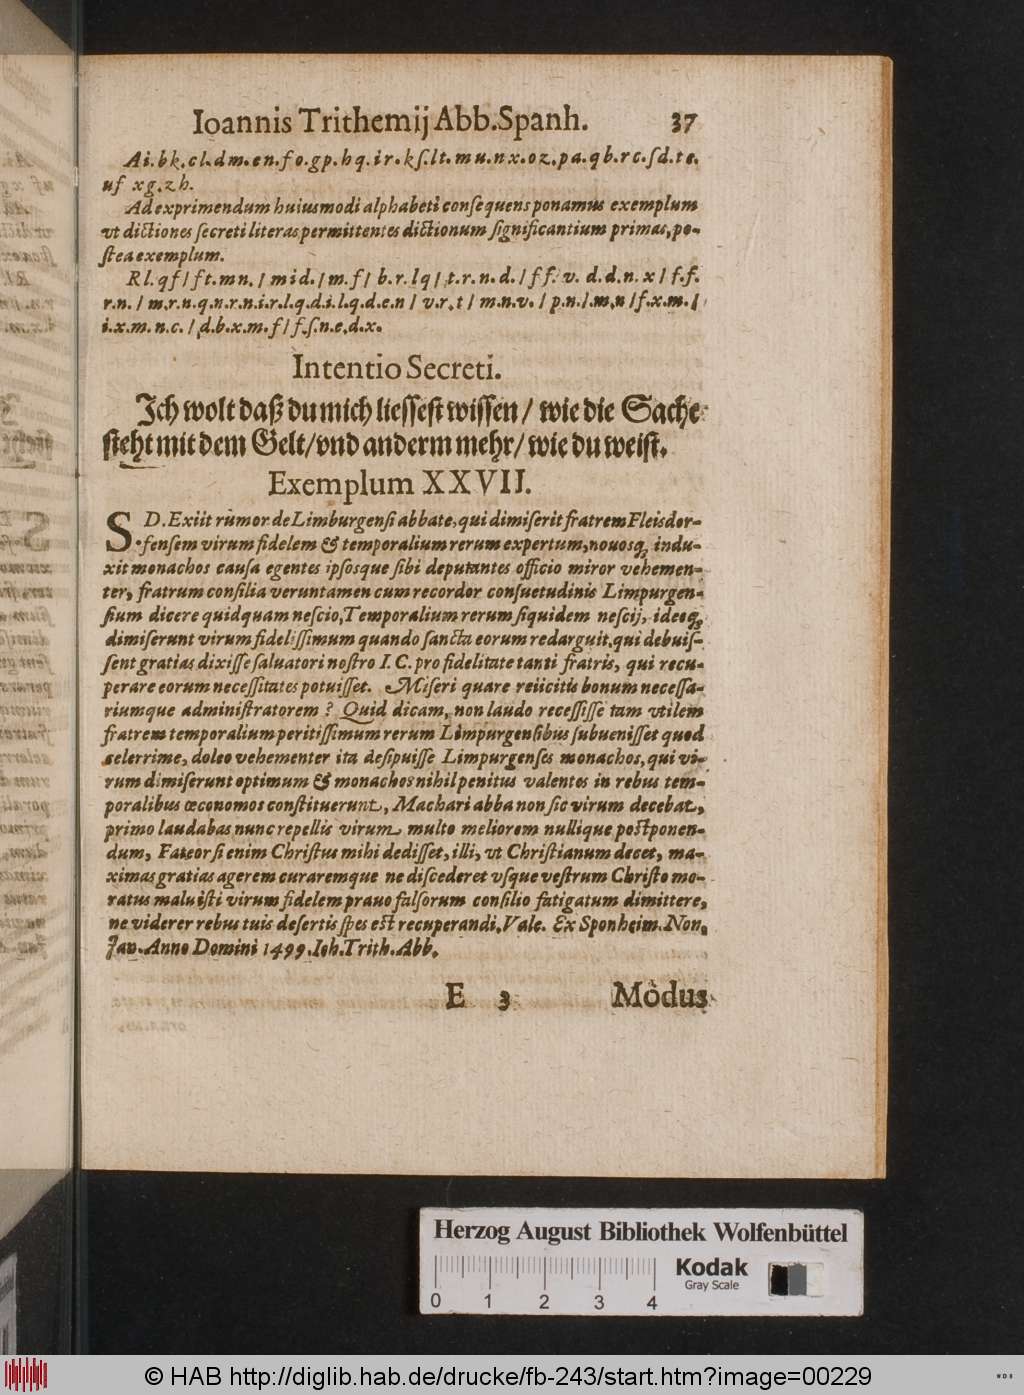 Ioannis Trithemij Abb. Spanh. 37
Ai. bk. cl. dm. en. fo. gp. hq. ir. kſ. lt. mu. nx. oz. pa. qb. rc. ſd. te.
uf xg. zh.
Ad exprimendum huiusmodi alphabeti conſequens ponamus exemplum
vt dictiones ſecreti literas permittentes dictionum ſignificantium primas, po-
ſtea exemplum.
Rl. qf / ft. mn. / mid. / m. f / b. r. lq / t. r. n. d. / f f. v. d. d. n. x / f. f.
r. n. / m. r. n. q. n. r. n. i. r. l. q. d. i. l. q. d. e. n / v. r. t / m. n. v. / p. n. / m. n / f. x. m. /
i. x. m. n. c. / d. b. x. m. f / f. ſ. n. e. d. x.
Intentio Secreti.
Ich wolt daß du mich lieſſeſt wiſſen / wie die Sache
ſteht mit dem Gelt / vnd anderm mehr / wie du weiſt.
Exemplum XXVII.
S D. Exiit rumor de Limburgenſi abbate, qui dimiſerit fratrem Fleisdor-
fenſem virum fidelem & temporalium rerum expertum, nouosq́; indu-
xit monachos cauſa egentes ipſosque ſibi deputantes officio miror vehemen-
ter, fratrum conſilia veruntamen cum recordor conſuetudinis Limpurgen-
ſium dicere quidquam neſcio, Temporalium rerum ſiquidem neſcij, ideoq́;
dimiſerunt virum fideliſſimum quando ſancta eorum redarguit, qui debuiſ-
ſent gratias dixiſſe ſaluatori noſtro I. C. pro fidelitate tanti fratris, qui recu-
perare eorum neceſſitates potuiſſet. Miſeri quare reiicitis bonum neceſſa-
riumque adminiſtratorem? Quid dicam, non laudo receſſiſſe tam vtilem
fratrem temporalium peritiſſimum rerum Limpurgenſibus ſubueniſſet quod
celerrime, doleo vehementer ita deſipuiſſe Limpurgenſes monachos, qui vi-
rum dimiſerunt optimum & monachos nihil penitus valentes in rebus tem-
poralibus œconomos conſtituerunt, Machari abba non ſic virum decebat,
primo laudabas nunc repellis virum multo meliorem nullique poſtponen-
dum, Fateor ſi enim Chriſtus mihi dediſſet, illi, vt Chriſtianum decet, ma-
ximas gratias agerem curaremque ne diſcederet vſque veſtrum Chriſto mo-
ratus maluiſti virum fidelem prauo falſorum conſilio fatigatum dimittere,
ne viderer rebus tuis deſertis ſpes eſt recuperandi, Vale. Ex Sponheim. Non.
Jan. Anno Domini 1499. Ioh. Trith. Abb.
E 3 Modus
Herzog August Bibliothek Wolfenbüttel
Kodak
Gray Scale
0 1 2 3 4
© HAB http://diglib.hab.de/drucke/fb-243/start.htm?image=00229